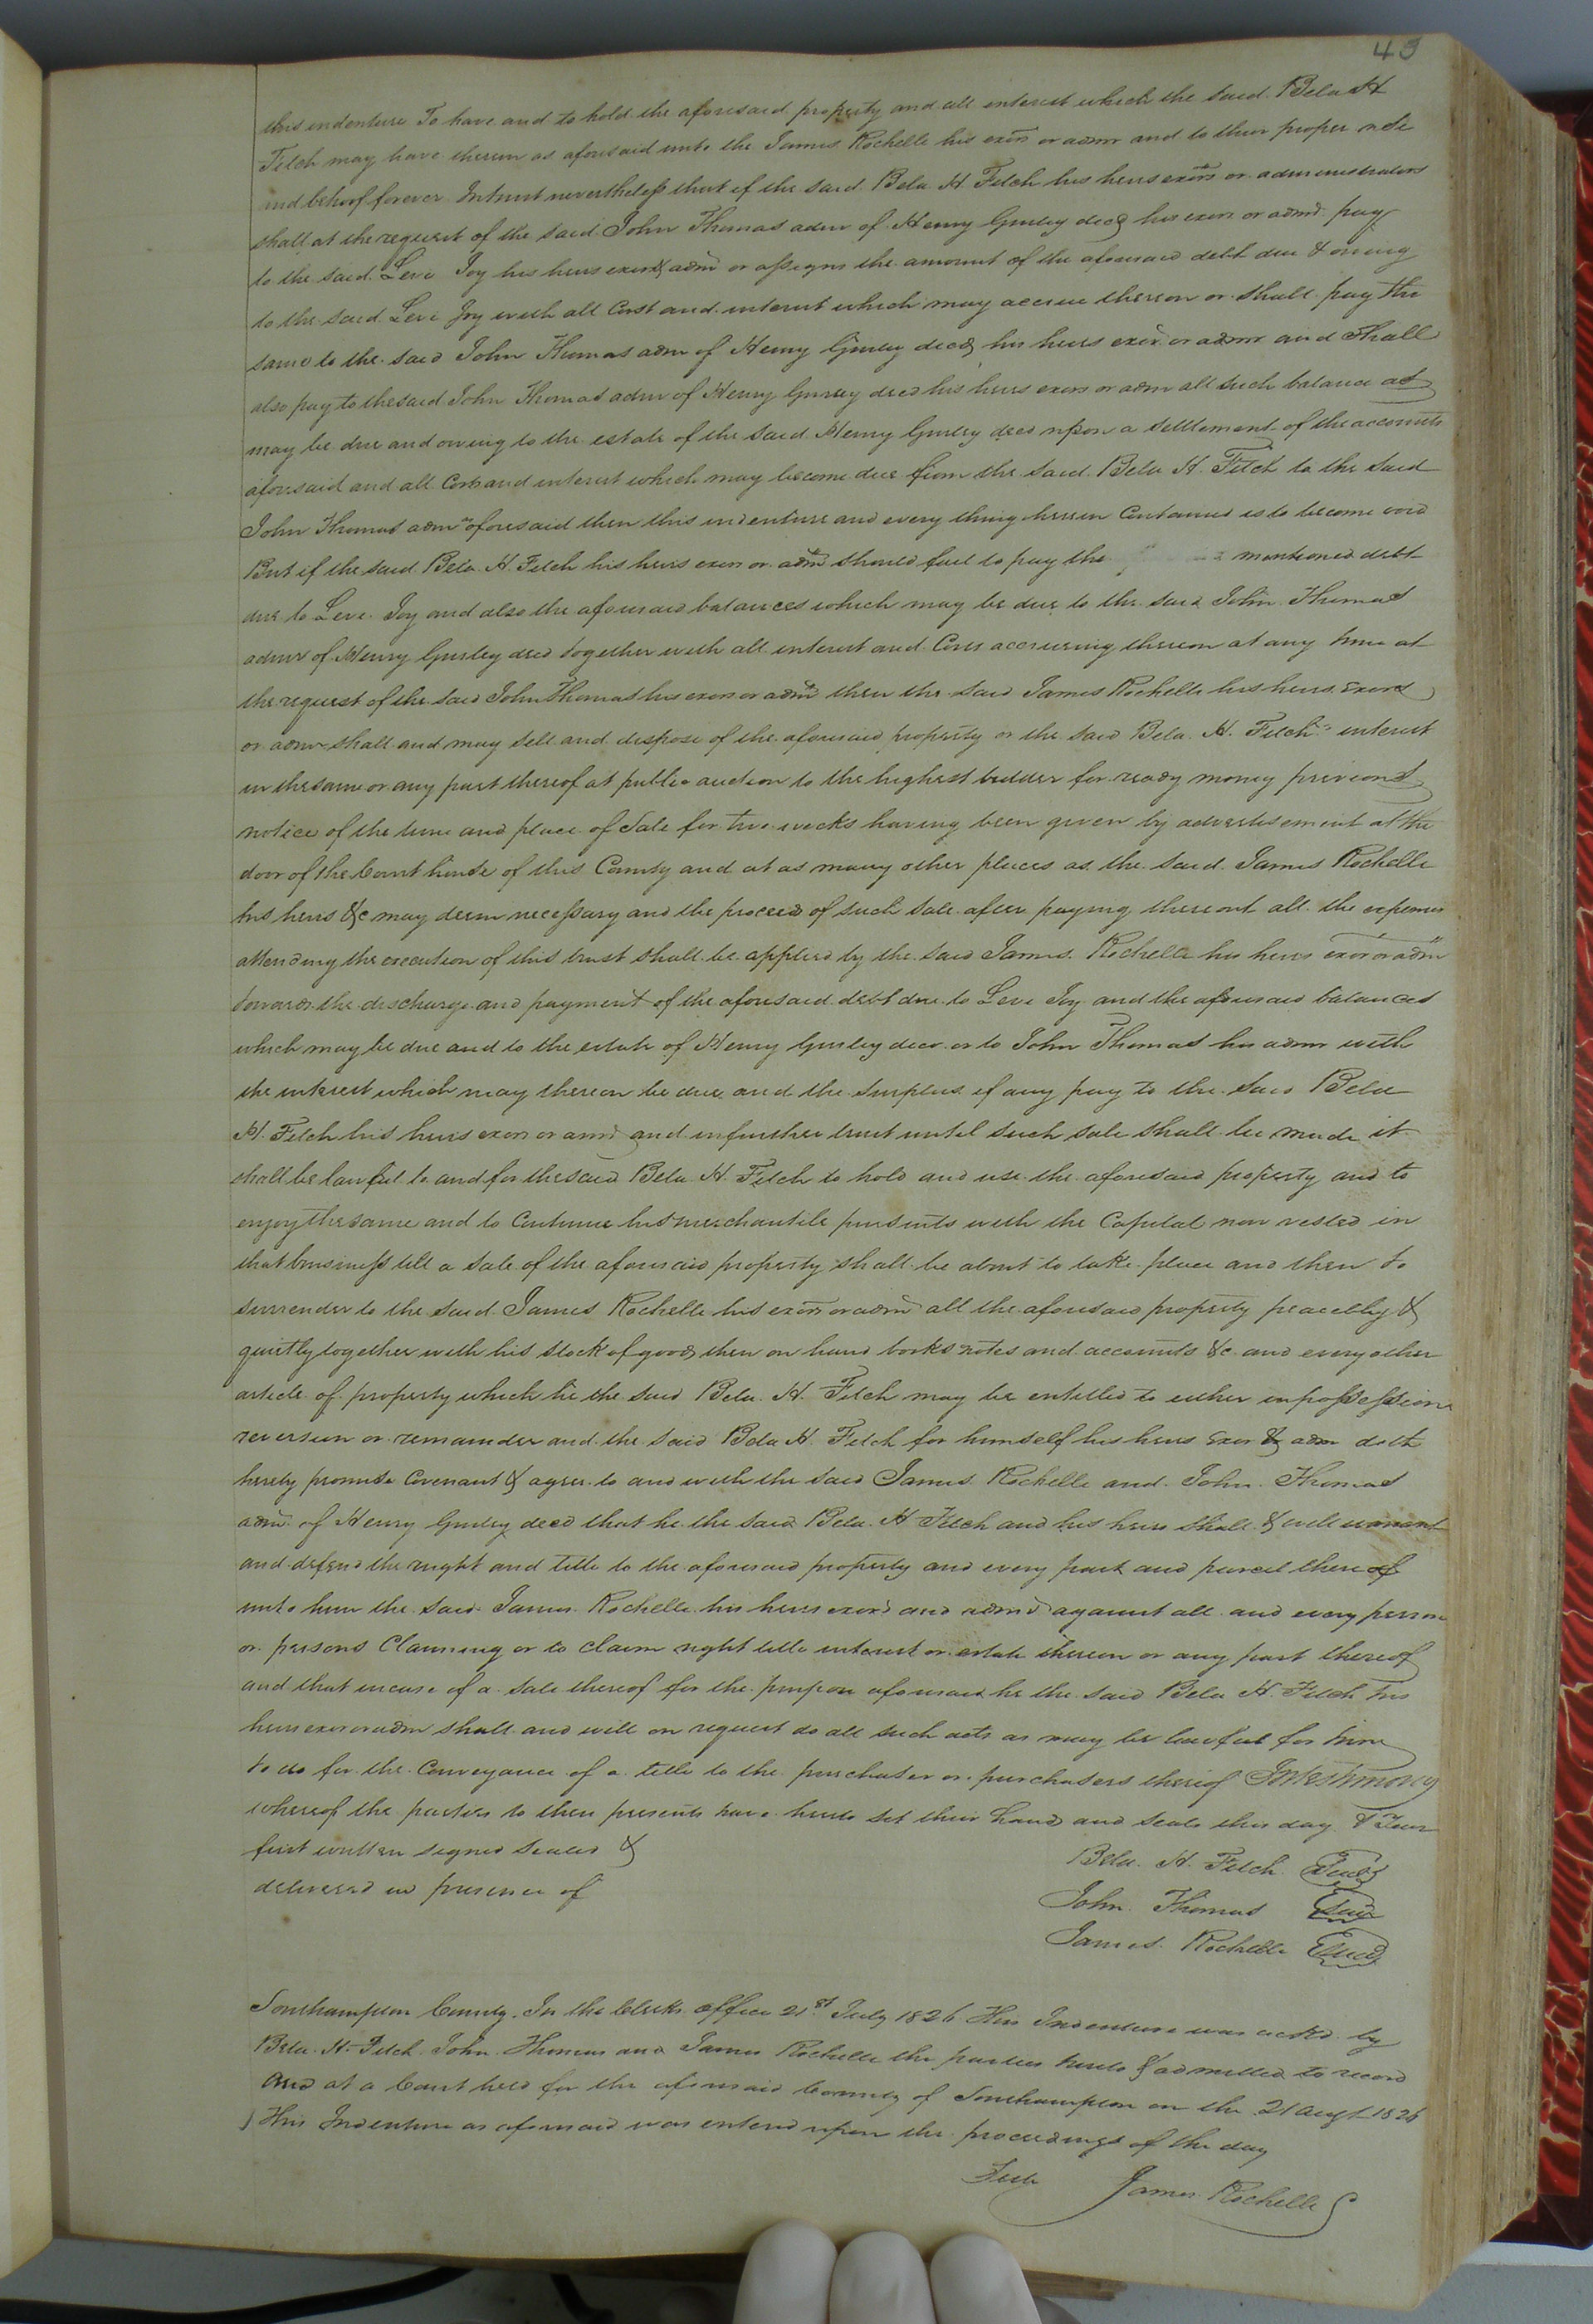 43
this indenture To have and to hold the aforesaid property and all interest which the said Bela H
Fitch may have therein as aforesaid unto the James Rochelle his exors or admr and to their proper use
and behoof forever Intrust nevertheless that if the said Bela H. Fitch his heirs exors or administrators
shall at the request of the said John Thomas admr of Henry Gurley decd his exors or admr pay
to the said Levi Joy his heirs exors & admr or assigns the amount of the aforesaid debt due & owing
to the said Levi Joy with all Cost and interest which may accrue thereon or shall pay the
same to the said John Thomas adm of Henry Gurley decd his heirs exor or admr and shall
also pay to the said John Thomas admr of Henry Gurley decd his heirs exors or adm all such balance as
may be due and owing to the estate of the said Henry Gurley decd upon a settlement of the accounts
aforesaid and all Costs and interest which may become due from the said Bela H. Fitch to the said
John Thomas admr aforesaid then this indenture and every thing herein Contained is to become void
But if the said Bela H. Fitch his heirs exors or admr should fail to pay the mentioned debt
due to Levi Joy and also the aforesaid balances which may be due to the said John Thomas
admr of Henry Gurley decd together with all interest and Costs accruing thereon at any time at
the request of the said John Thomas his exors or admr then the said James Rochelle his heirs Exors
or admr shall and may sell and dispose of the aforesaid property or the said Bela H. Fitch's interest
in the same or any part thereof at public auction to the highest bidder for ready money previous
notice of the time and place of Sale for two weeks having been given by advertisement at the
door of the Court house of this County and at as many other places as the said James Rochelle
his heirs &c may deem necessary and the proceeds of such sale after paying thereout all the expenses
attending the execution of this trust shall be applied by the said James Rochelle his heirs exor or adm
towards the discharge and payment of the aforesaid debt due to Levi Joy and the aforesaid balances
which may be due and to the estate of Henry Gurley decd or to John Thomas his admr with
the interest which may thereon be due and the surplus if any pay to the said Bela
H. Fitch his heirs exors or amr and in further trust until such sale shall be made it
shall be lawful to and for the said Bela H. Fitch to hold and use the aforesaid property and to
enjoy the same and to Continue his merchantile pursuits with the Capital now vested in
that business till a sale of the aforesaid property shall be about to take place and then to
surrender to the said James Rochelle his exors or admr all the aforesaid property peacebly &
quietly together with his stock of goods then on hand books notes and accounts &c and every other
article of property which he the said Bela H. Fitch may be entitled to either in possession
reversion or remainder and the said Bela H. Fitch for himself his heirs Exor & adm doth
hereby promise Covenant & agree to and with the said James Rochelle and John Thomas
admr of Henry Gurley decd that he the said Bela H Fitch and his heirs shall & will warrant
and defend the right and title to the aforesaid property and every part and parcel thereof
unto him the said James Rochelle his heirs exors and admr against all and every person
or persons Claiming or to Claim right title interest or estate therein or any part thereof
and that incase of a sale thereof for the purpose aforesaid he the said Bela H. Fitch his
heirs exor or adm shall and will on request do all such acts as may be lawful for him
to do for the Conveyance of a title to the purchaser or purchasers thereof Intestimony
whereof the parties to these presents have hereto set their hand and seals this day & Year
first written signed sealed &
delivered in presence of
Bela H. Fitch Seal
John Thomas Seal
James Rochelle Seal
Southampton County. In the Clerks office 21st July 1826 This Indenture was ackd. by
Bela H. Fitch John Thomas and James Rochelle the parties hereto & admitted to record
And at a Court held for the aforesaid County of Southampton on the 21 augt 1826
This Indenture as aforesaid was entered upon the proceedings of the day
Teste James Rochelle C